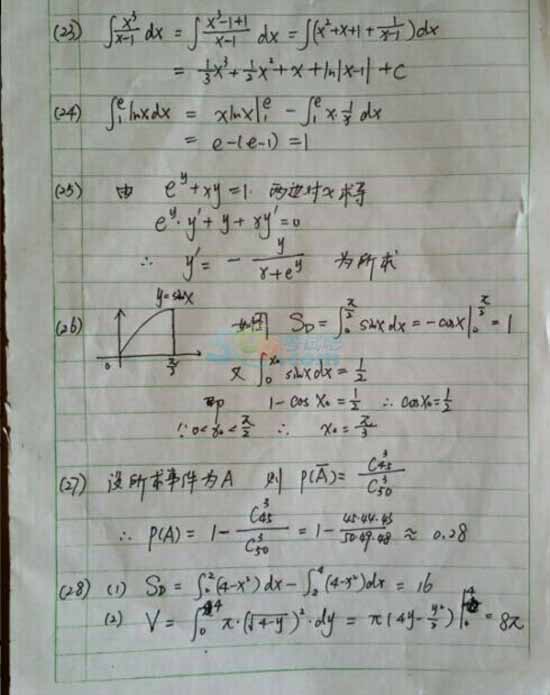 (23) ∫x³/(x-1) dx = ∫(x³-1+1)/(x-1) dx = ∫(x²+x+1+1/(x-1))dx
= 1/3x³+1/2x²+x+ln|x-1|+C
(24) ∫₁ᵉlnxdx = xlnx|₁ᵉ - ∫₁ᵉx·1/x dx
= e-(e-1)=1
(25) 由 eʸ+xy=1. 两边对x求导
eʸ·y'+y+xy'=0
∴ y'= - y/(x+eʸ) 为所求
y=sinx
(26) 如图 S_D=∫₀^(π/2) sinxdx=-cosx|₀^(π/2)=1
0 π/2
又 ∫₀^(x₀) sinxdx=1/2
即 1-cosx₀=1/2 ∴cosx₀=1/2
∵0<x₀<π/2 ∴ x₀=π/3
(27) 设所求事件为A 则 P(Ā)=C₄₅³/C₅₀³
∴ P(A)=1-C₄₅³/C₅₀³=1-45·44·43/50·49·48≈0.28
(28) (1) S_D=∫₀²(4-x²)dx-∫₂⁴(4-x²)dx=16
(2) V=∫₀⁴π·(√(4-y))²·dy=π(4y-y²/2)|₀⁴=8π